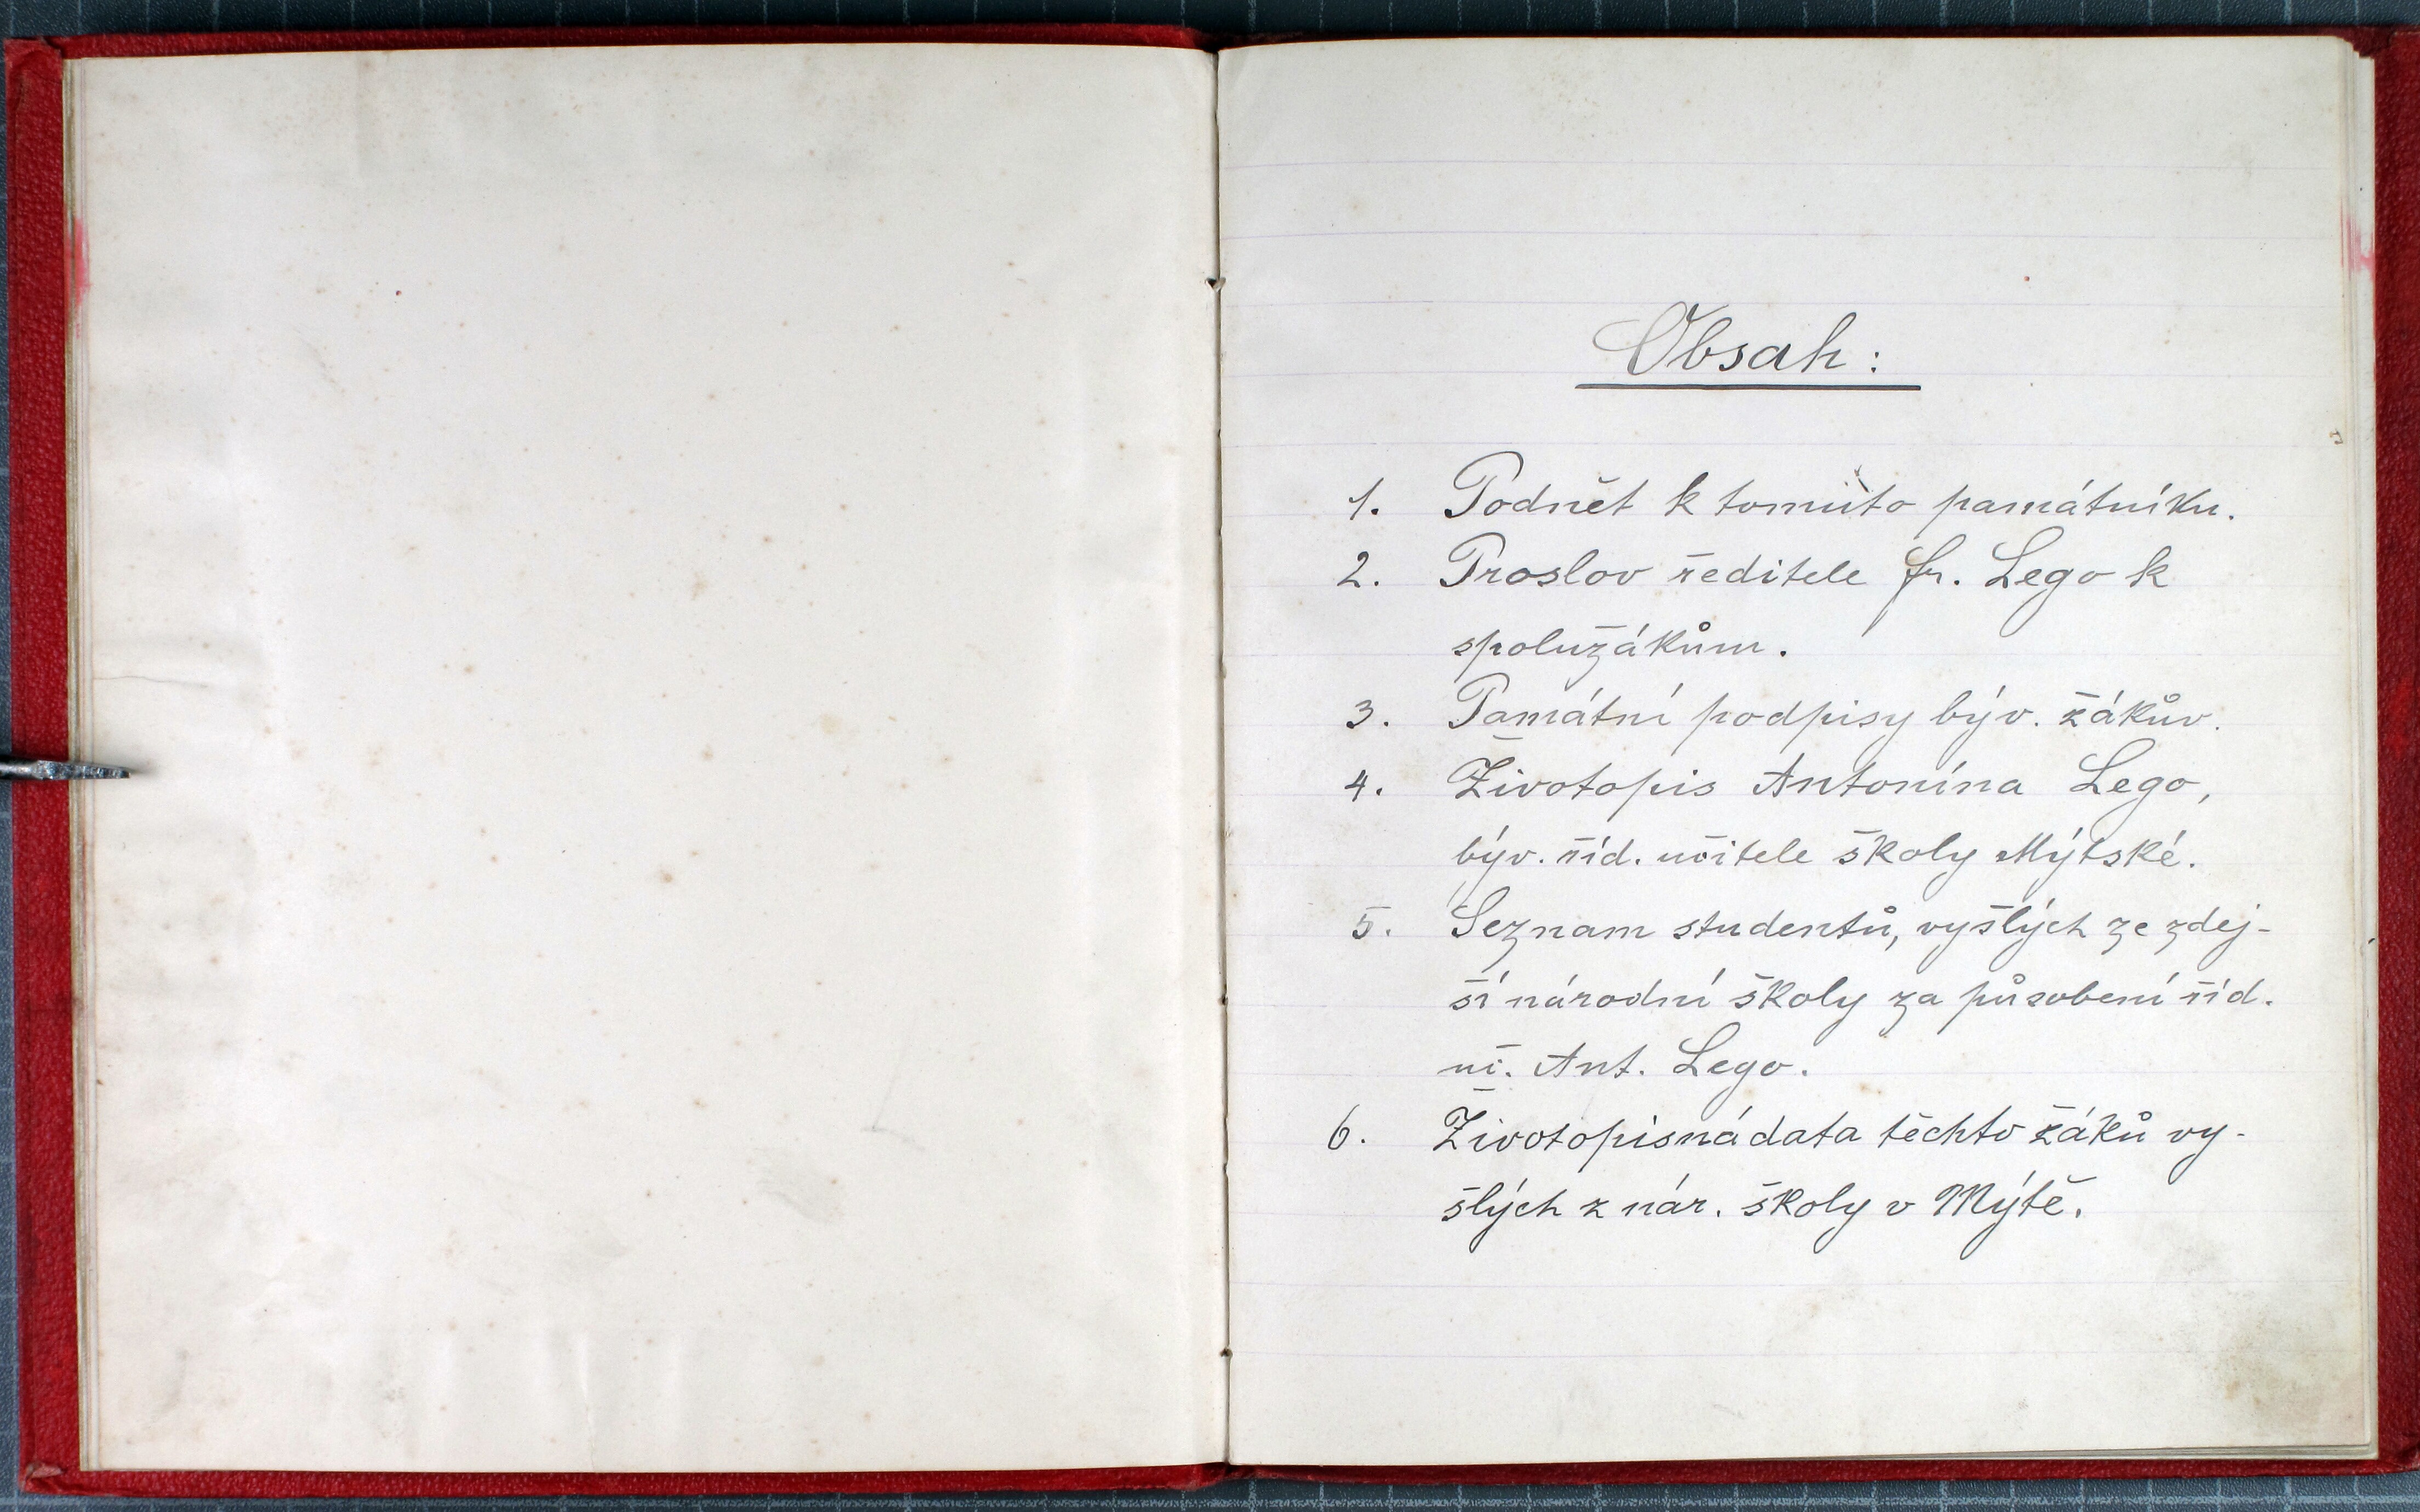 Obsah:
1. Podnět k tomuto památníku.
2. Proslov ředitele Fr. Lego k
spolužákům.
3. Památní podpisy býv. žákův.
4. Životopis Antonína Lego,
býv. říd. učitele školy Mýtské.
5. Seznam studentů, vyšlých ze zdej-
ší národní školy za působení říd.
uč. Ant. Lego.
6. Životopisná data těchto žáků vy-
šlých z nár. školy v Mýtě.